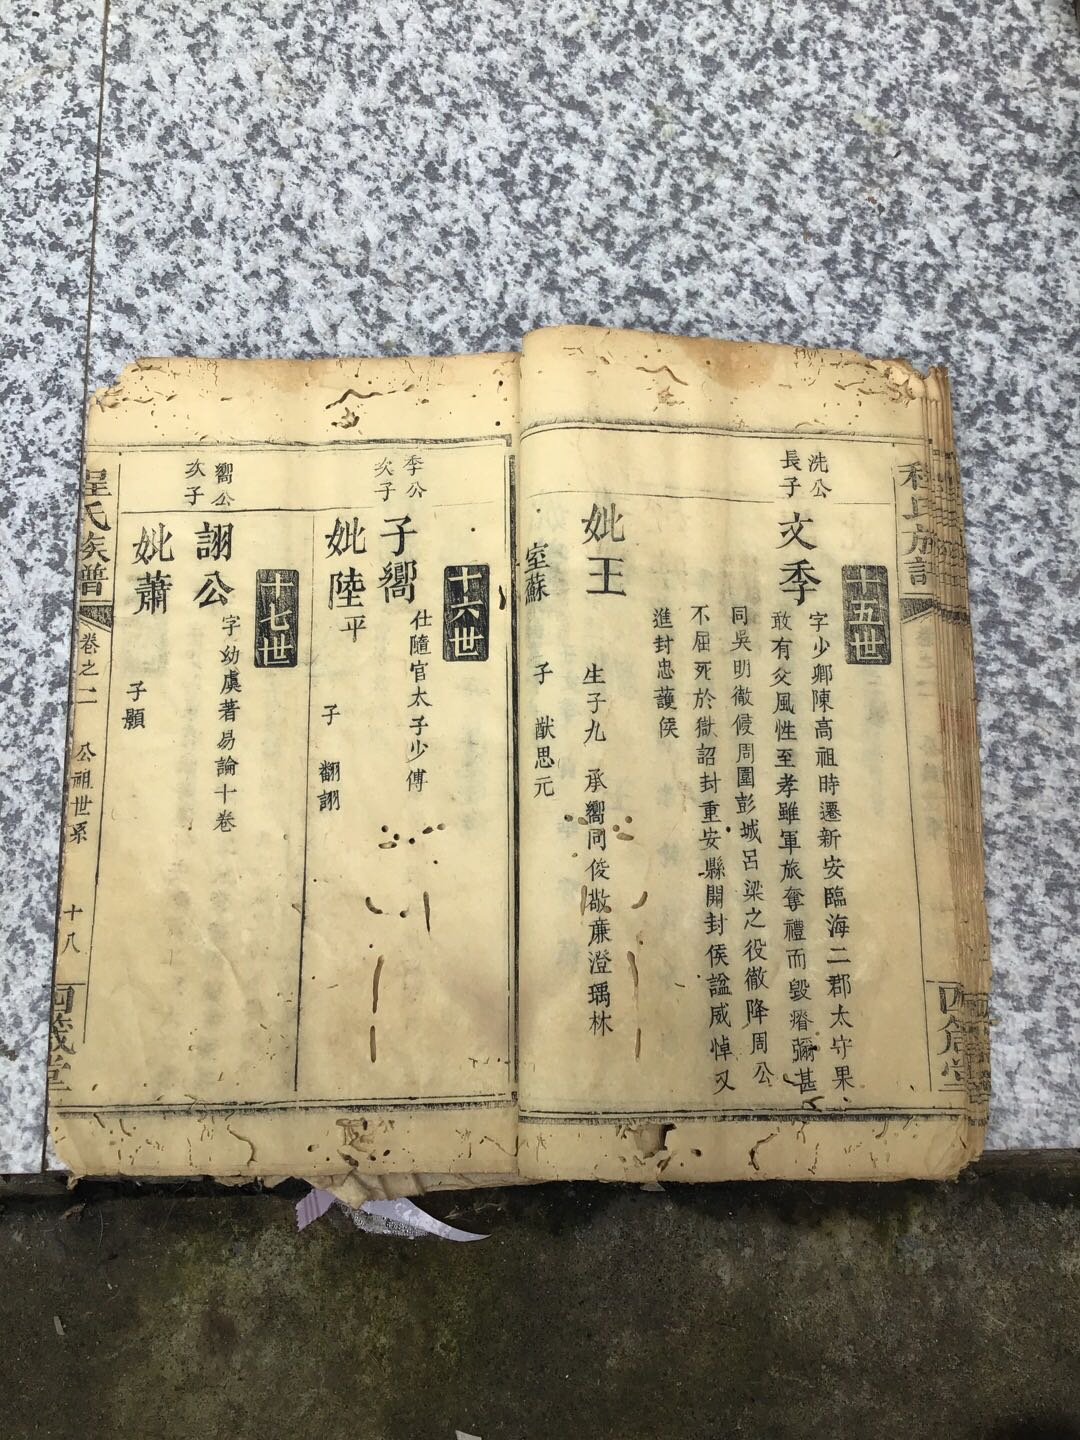 氏族譜
四箴堂
十五世
洗公
長子
文季
字少卿陳高祖時遷新安臨海二郡太守果
敢有父風性至孝雖軍旅奪禮而毀瘠彌甚
同吳明徹侵周圍彭城呂梁之役徹降周公
不屈死於獄詔封重安縣開封侯諡威悼又
進封忠護侯
妣王
生子九 承嚮同俊敬亷澄瑀林
室蘇
子 猷思元
十六世
季公
次子
子嚮
仕隨官太子少傅
妣陸平
子 翻詡
十七世
嚮公
次子
詡公
字幼虞著易論十卷
妣蕭
子顥
程氏族譜
卷之二 公祖世系 十八
四箴堂